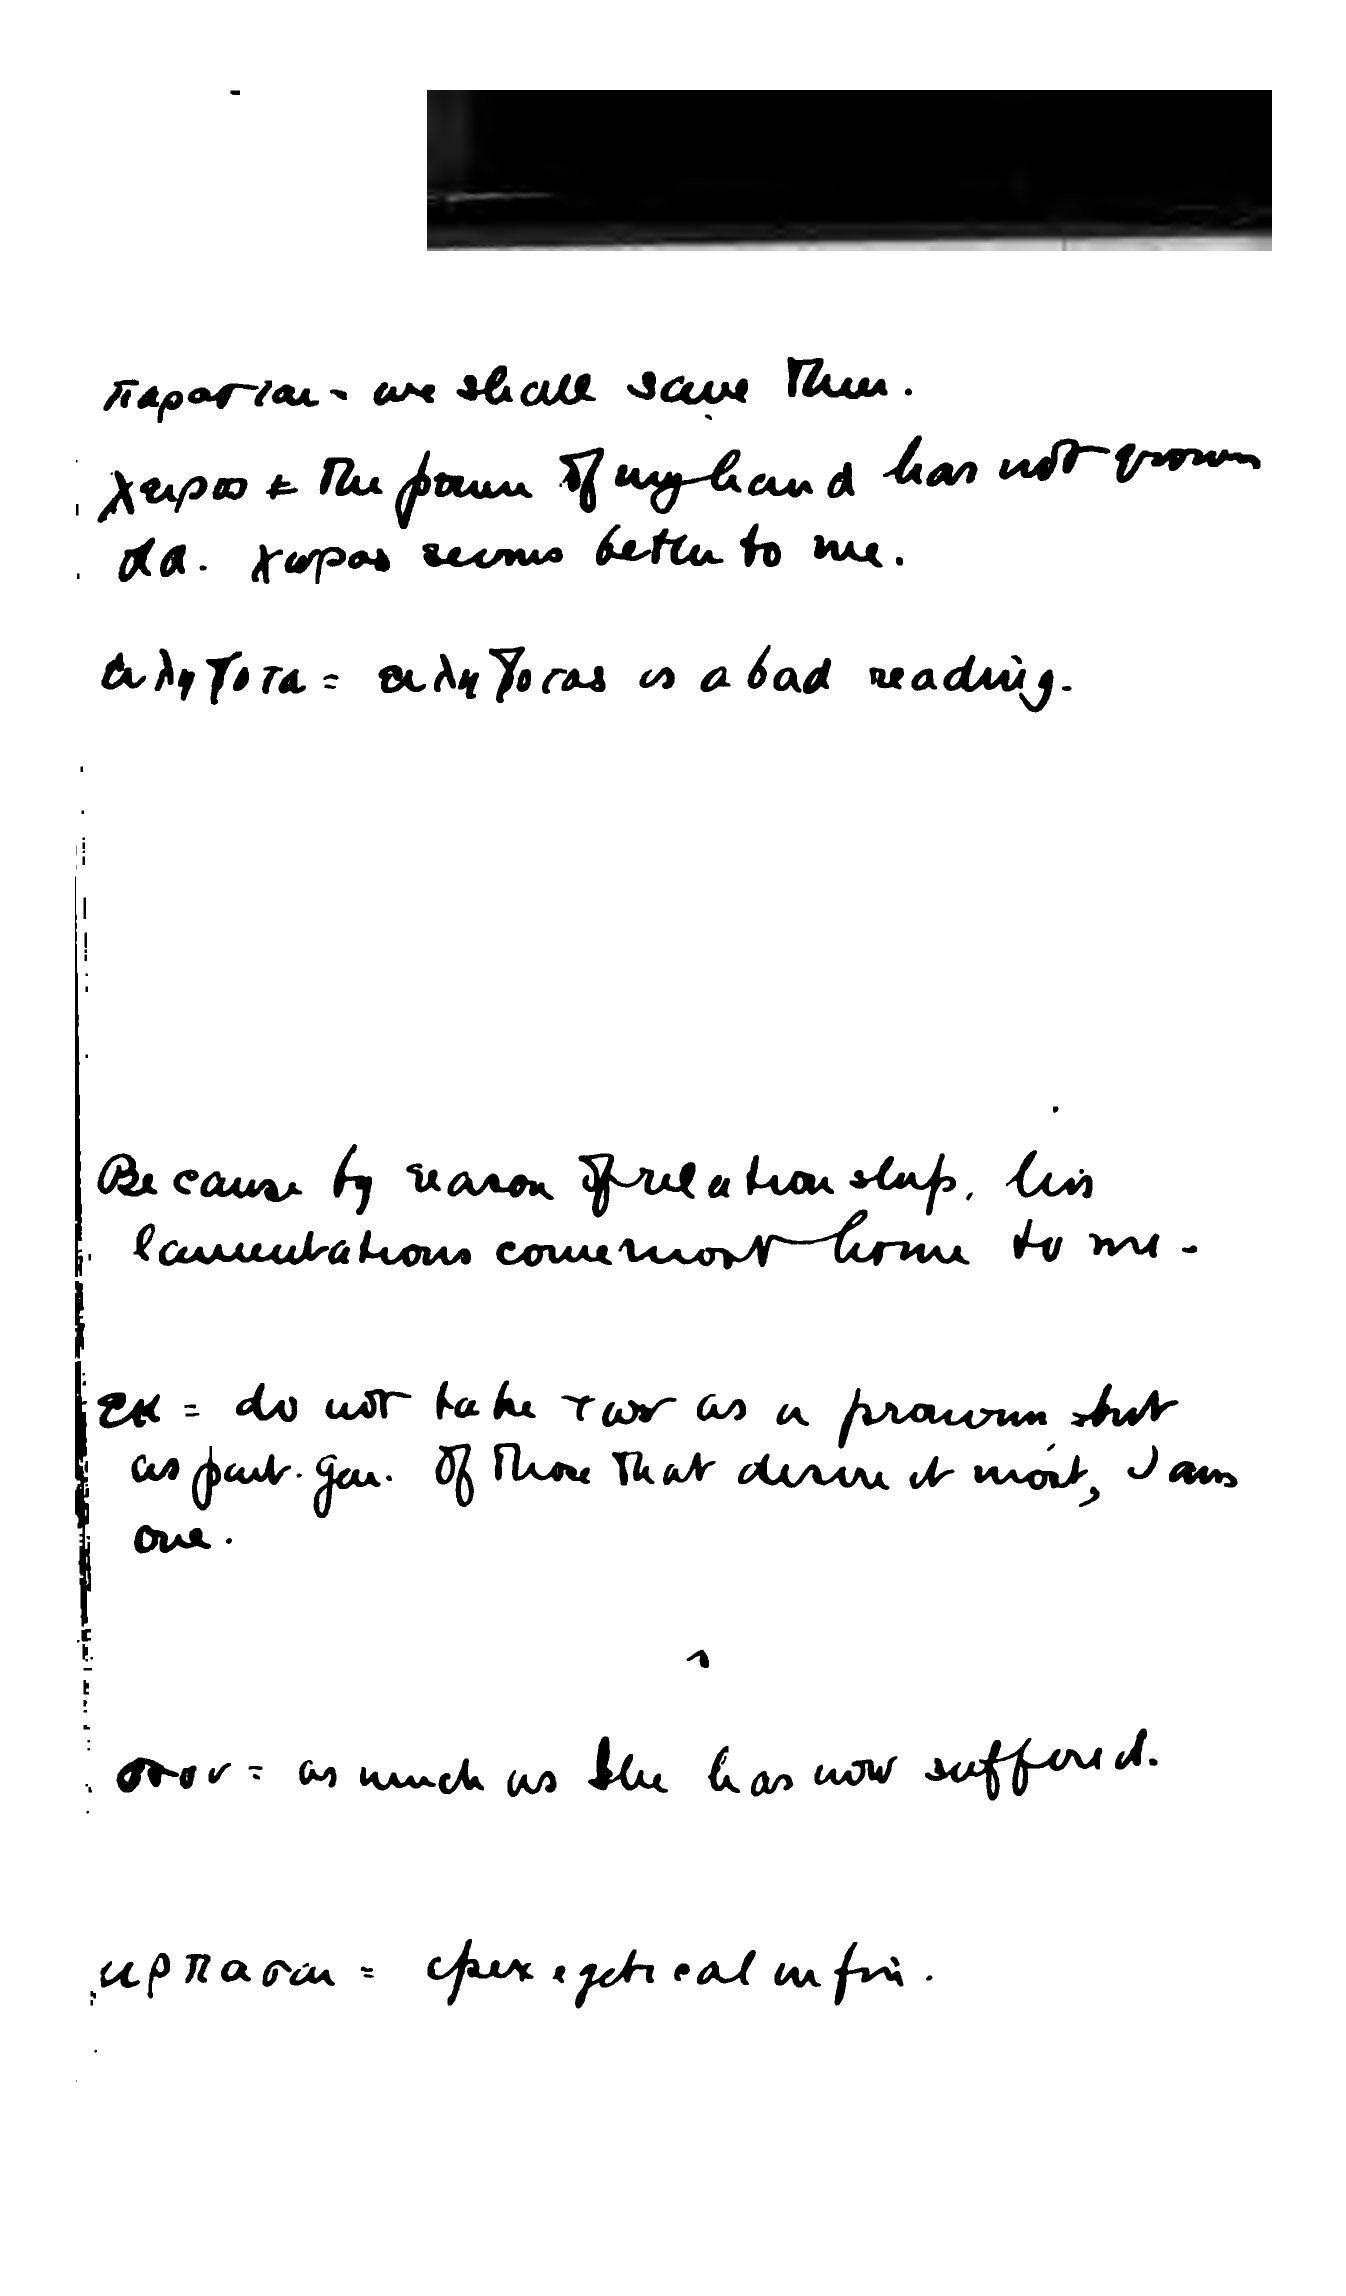 παρεσται = we shall save them.
χειρος = the power of my hand has not grown
old. χωρας seems better to me.
ειληφοτα = ειληφοτας is a bad reading.
Because by reason of relationship, his
lamentations come most home to me.
εκ = do not take των as a pronoun but
as part. gen. Of those that desire it most, I am
one.
οσον = as much as she has now suffered.
αρπασαι = epexegetical infin.